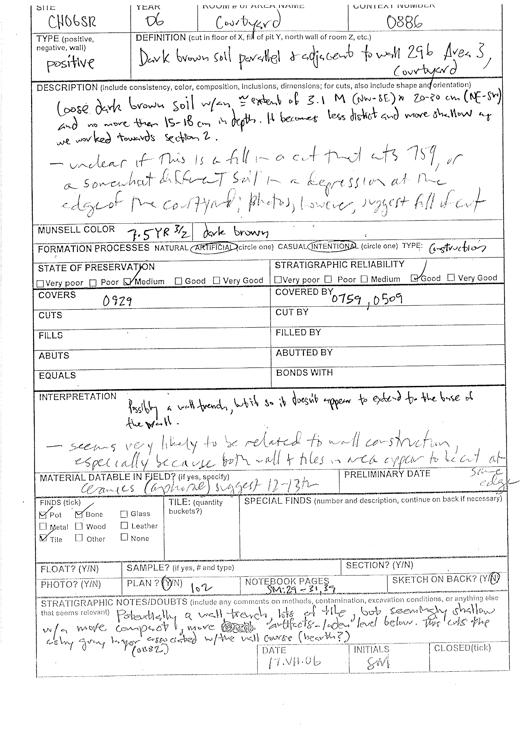 SITE YEAR ROOM # OR AREA NAME CONTEXT NUMBER
CH06SR 06 Courtyard 0886
TYPE (positive, negative, wall) DEFINITION (cut in floor of X, fill of pit Y, north wall of room Z, etc.)
positive Dark brown soil parallel & adjacent to wall 296 Area 3, Courtyard
DESCRIPTION (include consistency, color, composition, inclusions, dimensions; for cuts, also include shape and orientation)
Loose dark brown soil w/an ≅ extent of 3.1 M (NW-SE) x 20-30 cm (NE-SW)
and no more than 15-18 cm in depth. It becomes less distict and more shallow as
we worked towards section 2.
- unclear if this is a fill in a cut that cuts 759, or
a somewhat different soil in a depression at the
edge of the courtyard; photos, however, suggest fill of cut
MUNSELL COLOR 7.5 YR 3/2 dark brown
FORMATION PROCESSES NATURAL ARTIFICIAL (circle one) CASUAL INTENTIONAL (circle one) TYPE: Construction
STATE OF PRESERVATION STRATIGRAPHIC RELIABILITY
Very poor Poor Medium Good Very Good Very poor Poor Medium Good Very Good
COVERS 0929 COVERED BY 0759, 0509
CUTS CUT BY
FILLS FILLED BY
ABUTS ABUTTED BY
EQUALS BONDS WITH
INTERPRETATION
Possibly a wall trench, but if so it doesn't appear to extend for the base of
the wall.
- seems very likely to be related to wall construction,
especially because both wall & tiles in area appear to be cut at
same edge
MATERIAL DATABLE IN FIELD? (if yes, specify) PRELIMINARY DATE
ceramics (amphorae) suggest 12-13th
FINDS (tick) TILE: (quantity buckets?) SPECIAL FINDS (number and description, continue on back if necessary)
Pot Bone Glass
Metal Wood Leather
Tile Other None
FLOAT? (Y/N) SAMPLE? (if yes, # and type) SECTION? (Y/N)
PHOTO? (Y/N) PLAN? (Y/N) 102 NOTEBOOK PAGES SM: 29-31, 39 SKETCH ON BACK? (Y/N)
STRATIGRAPHIC NOTES/DOUBTS (include any comments on methods, contamination, excavation conditions, or anything else
that seems relevant) Potentially a wall trench, lots of tile, but seemingly shallow
w/a more compact, more "artifacts-laden" level below. This cuts the
ashy gray layer associated w/the wall course (hearth?)
(0882)
DATE INITIALS CLOSED(tick)
17.VII.06 SM